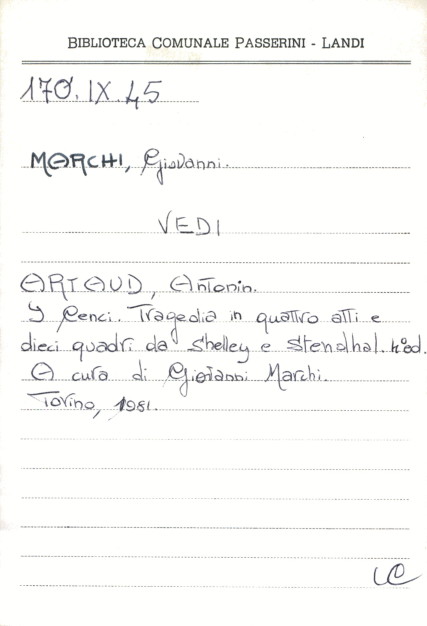 BIBLIOTECA COMUNALE PASSERINI - LANDI
170.IX.45
MARCHI, Giovanni.
VEDI
ARTAUD, Antonin.
I Cenci. Tragedia in quattro atti e
dieci quadri da Shelley e Stendhal. 4ª ed.
A cura di Giovanni Marchi.
Torino, 1981.